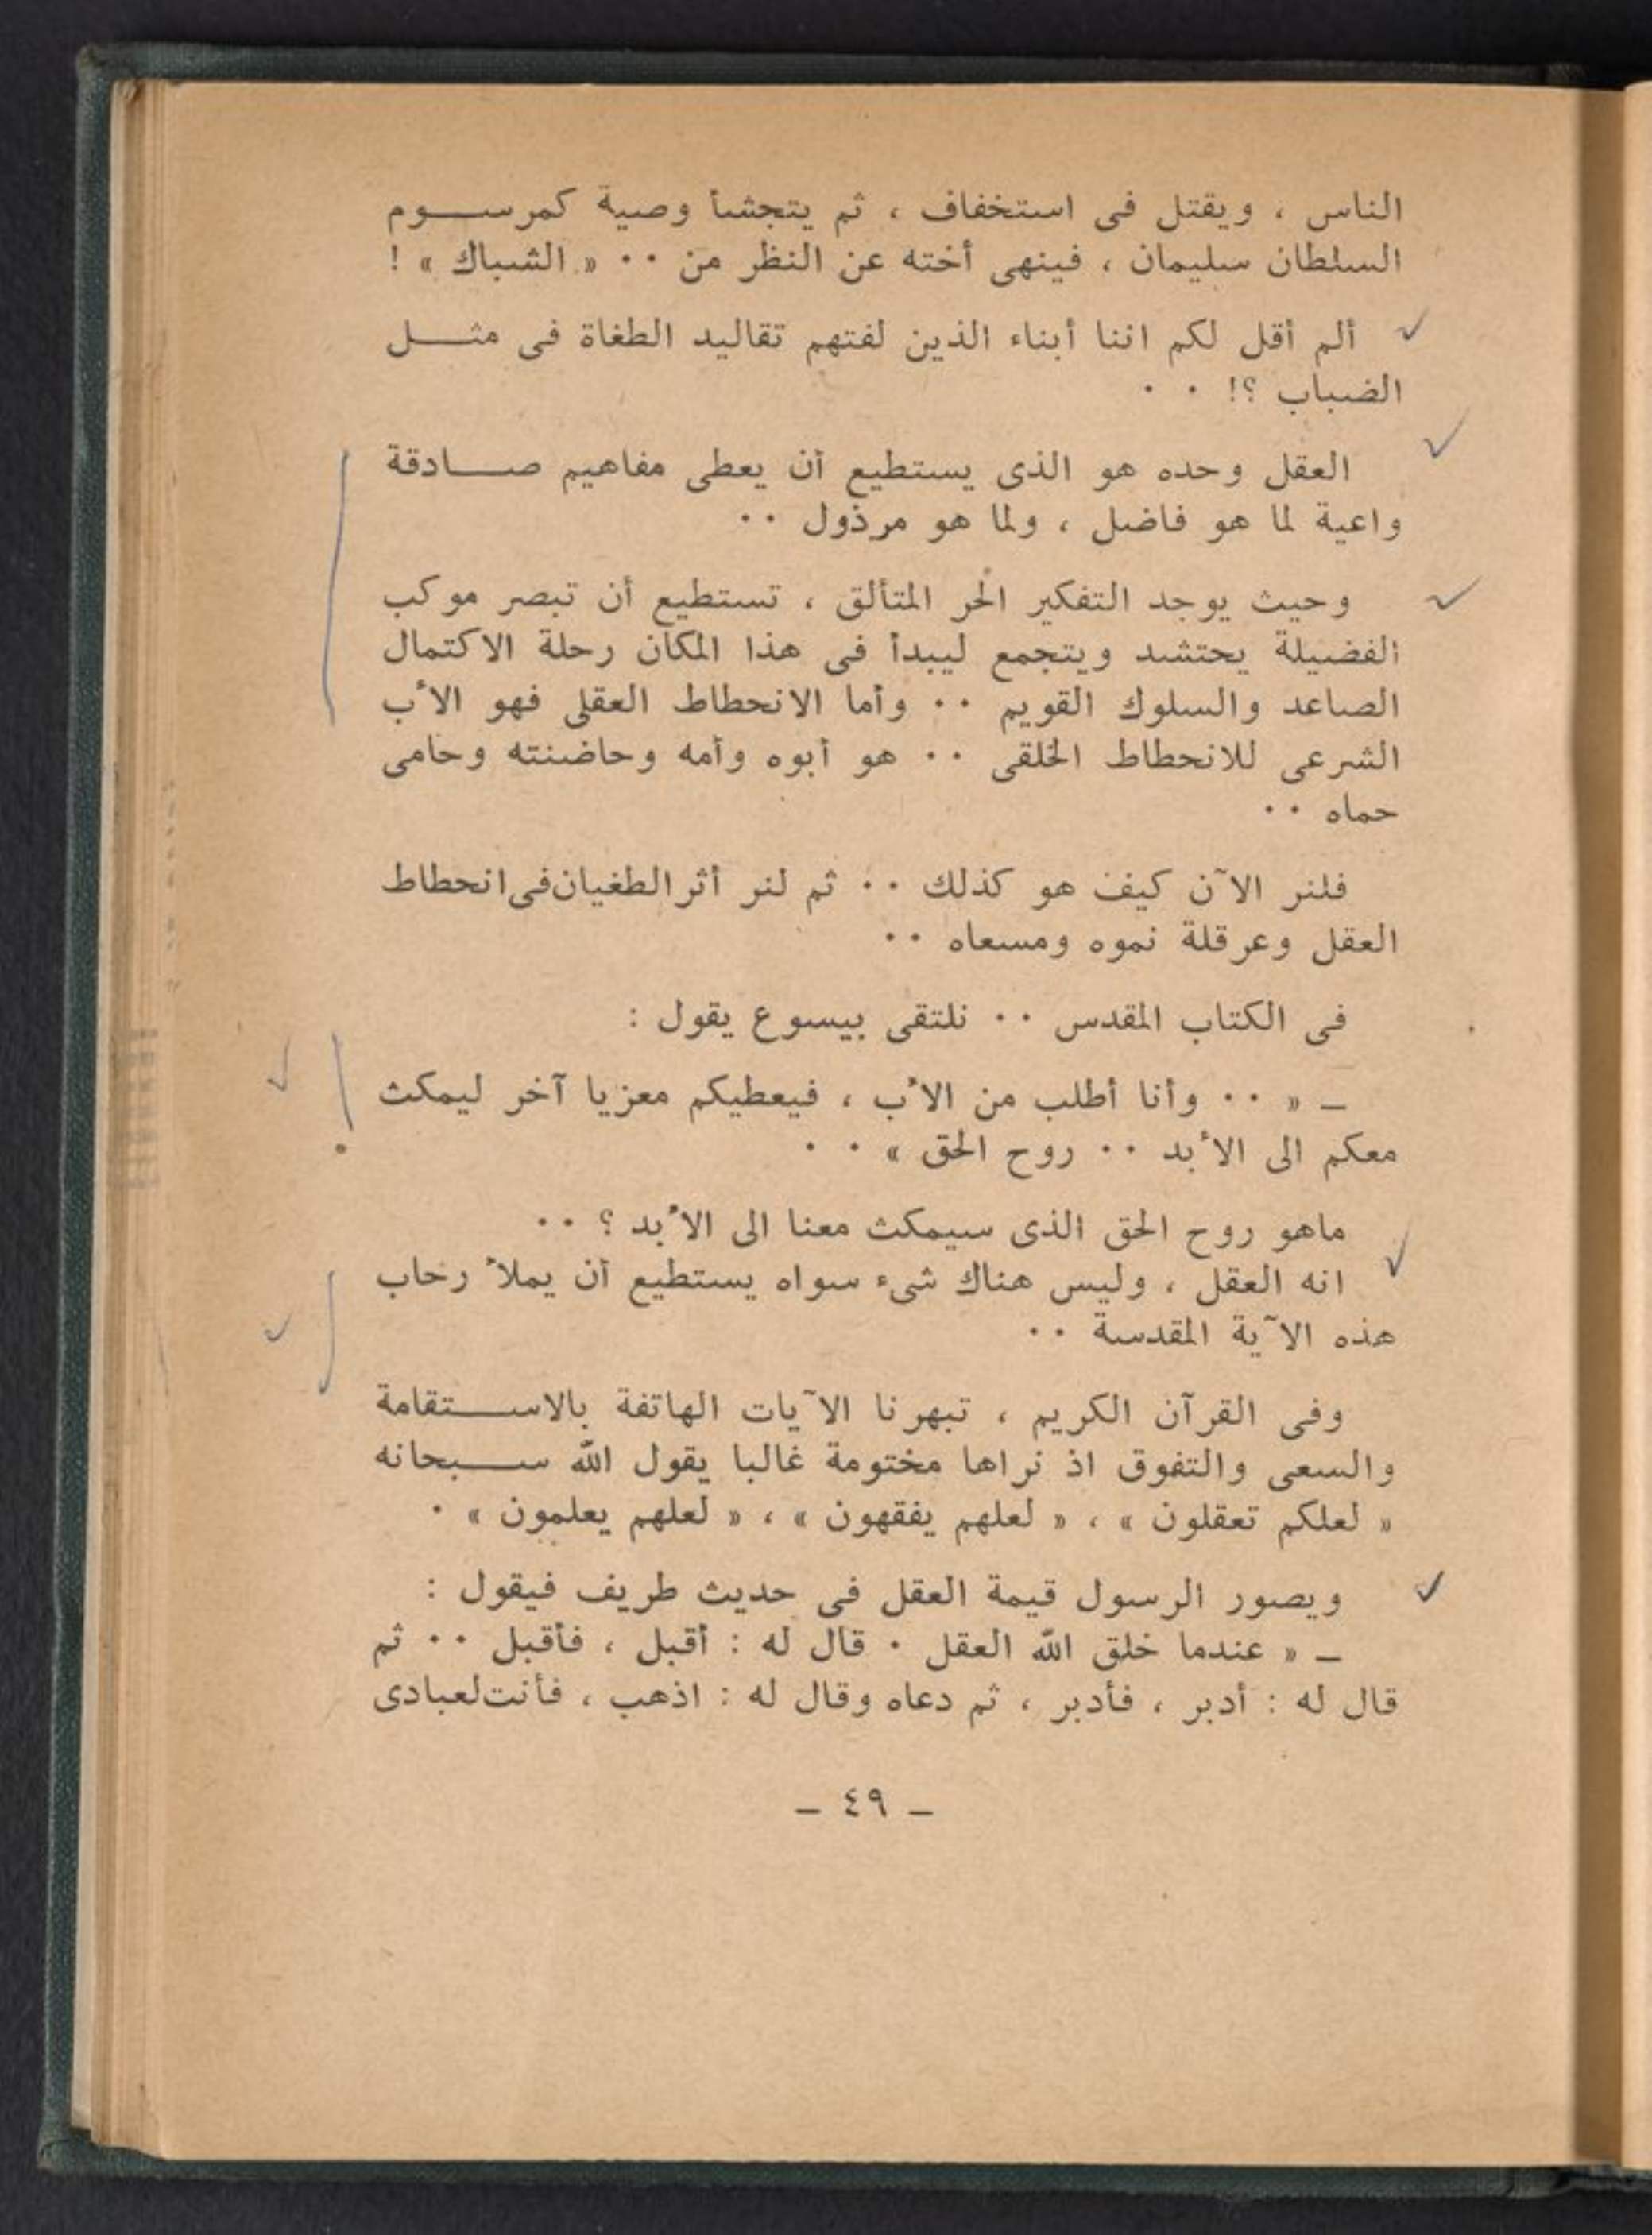 الناس ، ويقتل فى استخفاف ، ثم يتجشأ وصية كمرسـوم
السلطان سليمان ، فينهى أخته عن النظر من ٠٠ « الشباك » !
ألم أقل لكم اننا أبناء الذين لفتهم تقاليد الطغاة فى مثـل
الضباب ؟! ٠ ٠
العقل وحده هو الذى يستطيع أن يعطى مفاهيم صـادقة
واعية لما هو فاضل ، ولما هو مرذول ٠٠
وحيث يوجد التفكير الحر المتألق ، تستطيع أن تبصر موكب
الفضيلة يحتشد ويتجمع ليبدأ فى هذا المكان رحلة الاكتمال
الصاعد والسلوك القويم ٠٠ وأما الانحطاط العقلى فهو الأب
الشرعى للانحطاط الخلقى ٠٠ هو أبوه وأمه وحاضنته وحامى
حماه ٠٠
فلنر الآن كيف هو كذلك ٠٠ ثم لنر أثر الطغيان فى انحطاط
العقل وعرقلة نموه ومسعاه ٠٠
فى الكتاب المقدس ٠٠ نلتقى بيسوع يقول :
ـ « ٠٠ وأنا أطلب من الأب ، فيعطيكم معزيا آخر ليمكث
معكم الى الأبد ٠٠ روح الحق » ٠ ٠
ماهو روح الحق الذى سيمكث معنا الى الأبد ؟ ٠٠
انه العقل ، وليس هناك شىء سواه يستطيع أن يملأ رحاب
هذه الآية المقدسة ٠٠
وفى القرآن الكريم ، تبهرنا الآيات الهاتفة بالاسـتقامة
والسعى والتفوق اذ نراها مختومة غالبا يقول الله سـبحانه
« لعلكم تعقلون » ، « لعلهم يفقهون » ، « لعلهم يعلمون » ٠
ويصور الرسول قيمة العقل فى حديث طريف فيقول :
ـ « عندما خلق الله العقل ٠ قال له : أقبل ، فأقبل ٠٠ ثم
قال له : أدبر ، فأدبر ، ثم دعاه وقال له : اذهب ، فأنت لعبادى
ـ ٤٩ ـ